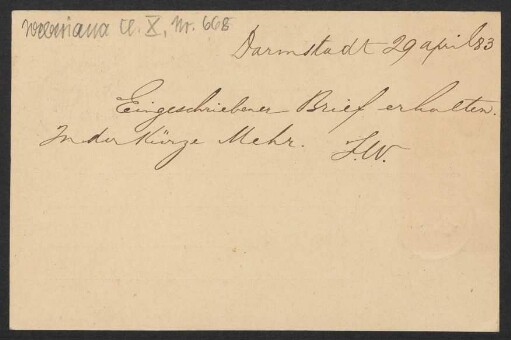 Weberiana Cl. X, Nr. 668
Darmstadt 29 april 83
Eingeschriebenen Brief erhalten.
In der Kürze Mehr. F.W.